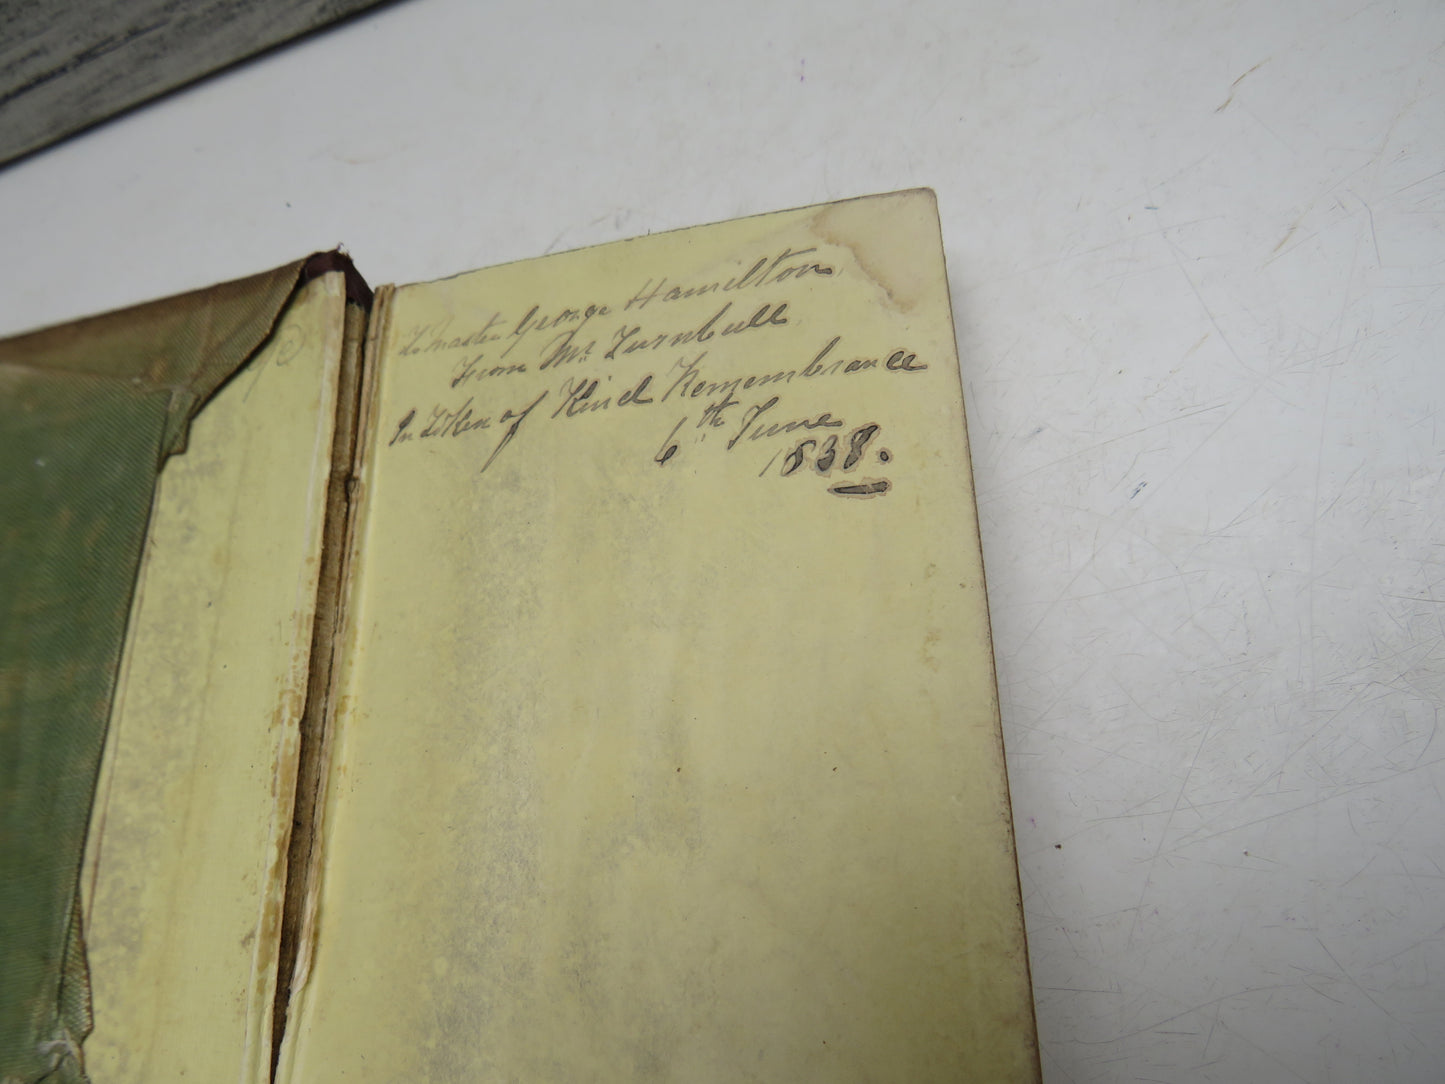 To Master George Hamilton
From Mr Turnbull
In Token of Kind Remembrance
6th June
1838.